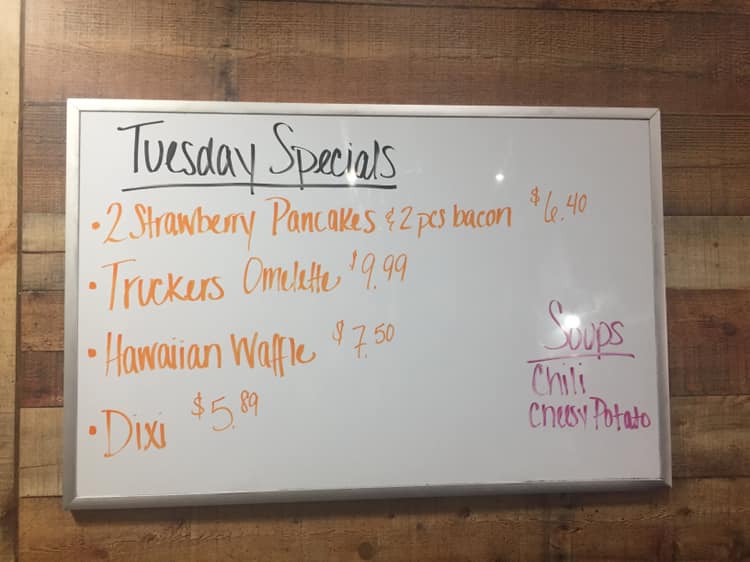 Tuesday Specials
• 2 Strawberry Pancakes & 2 pcs bacon $6.40
• Truckers Omelette $9.99
• Hawaiian Waffle $7.50
• Dixi $5.89
Soups
Chili
Cheesy Potato